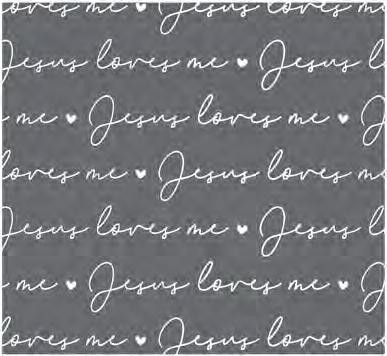 loves me ♥ Jesus loves
Jesus loves me ♥ Jesus l
me ♥ Jesus loves me ♥
loves me ♥ Jesus loves me
Jesus loves me ♥ Jesus l
me ♥ Jesus loves me ♥
loves me ♥ Jesus loves me